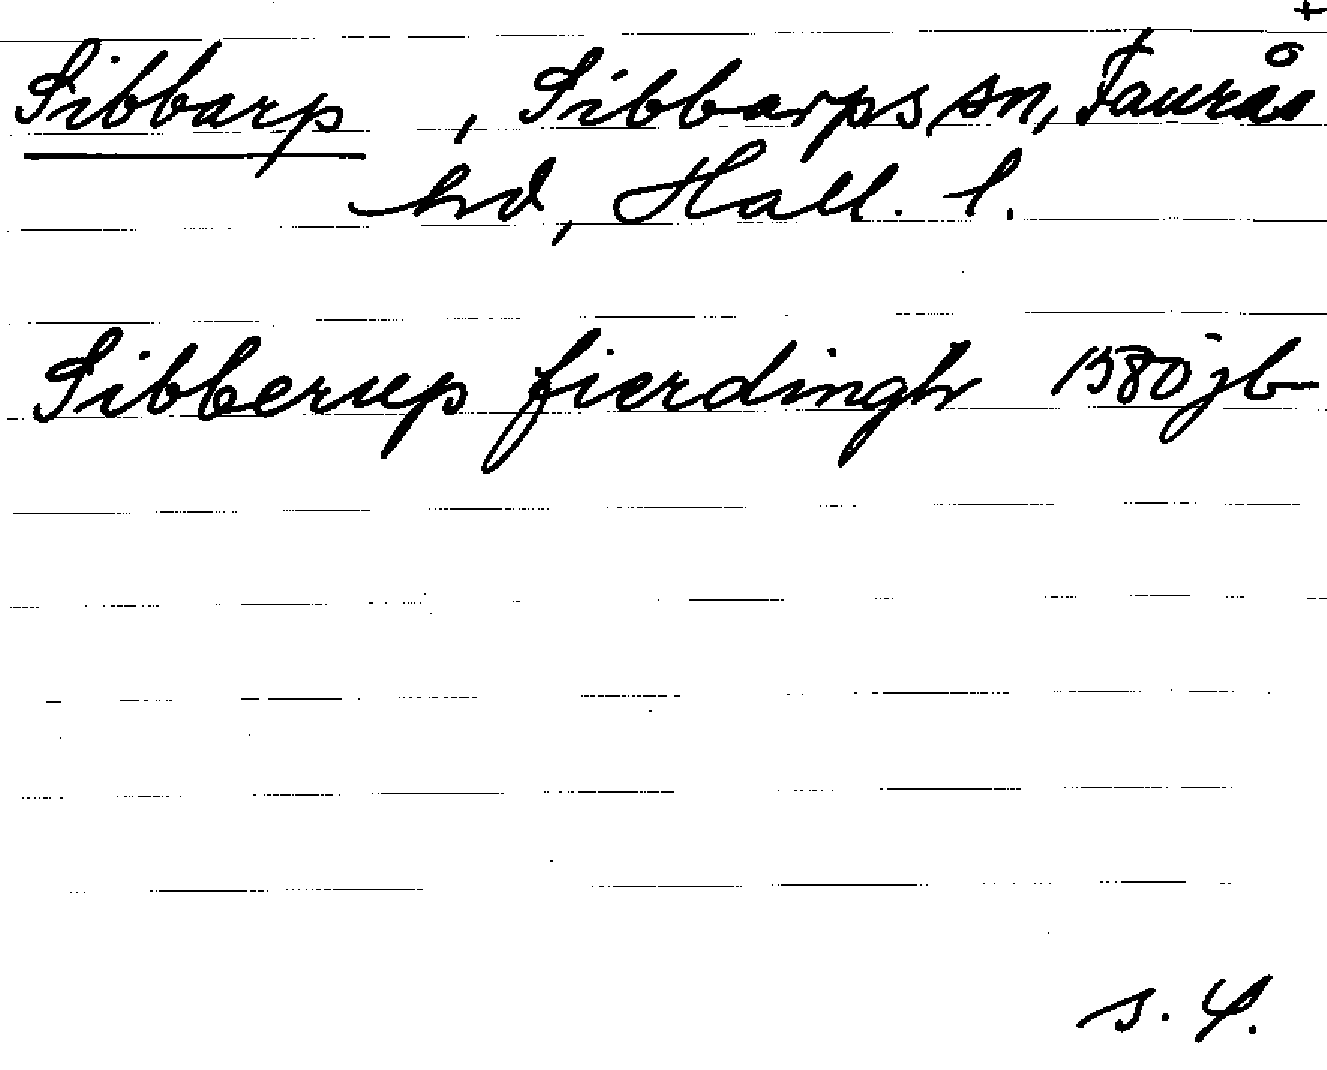 +
Sibbarp, Sibbarps sn, Faurås
hd, Hall. l.
Sibberup fierdingh 1580 jb
s. 4.